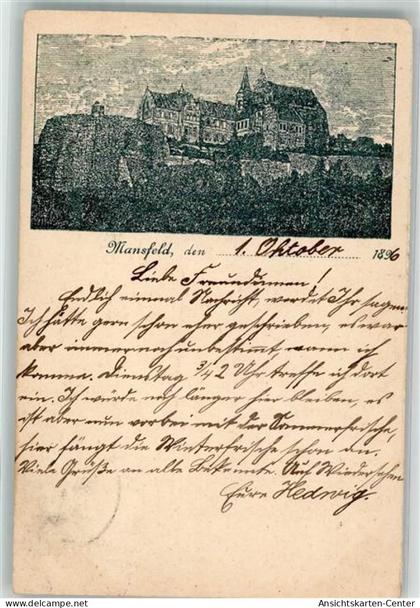 Mansfeld, den 1. Oktober 1896
Liebe Freundinnen!
Endlich einmal Nachricht, werdet Ihr sagen.
Ich hätte gern schon eher geschrieben, es war
aber immer noch unbestimmt, wann ich
komme. Dienstag 3/4 2 Uhr treffe ich dort
ein. Ich würde noch länger hier bleiben, es
ist aber nun vorbei mit der Sommerfrische,
hier fängt die Winterfrische schon an.
Viele Grüße an alte Bekannte. Auf Wiedersehen
Eure Hedwig.
www.ansichtskarten-center.de
Ansichtskarten-Center